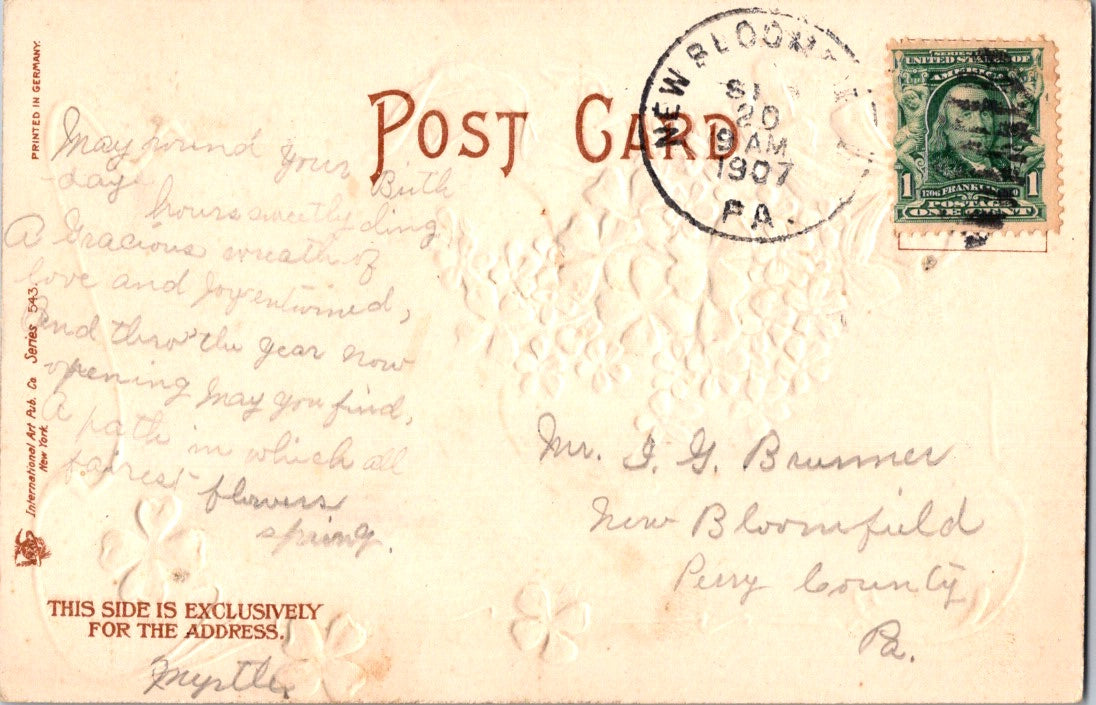 PRINTED IN GERMANY.
POST CARD
NEW BLOOM
20
9 AM
1907
PA.
SERIES 1902
UNITED STATES OF
AMERICA
1 1706 FRANKLIN 1
POSTAGE
ONE CENT
May round your Birth
day
hours sweetly cling
A Gracious wreath of
love and Joy entwined,
And thro' the year now
opening may you find,
A path in which all
fairest flowers
spring.
International Art Pub. Co Series 543.
New York
Mr. I. G. Brunner
New Bloomfield
Perry County
Pa.
THIS SIDE IS EXCLUSIVELY
FOR THE ADDRESS.
Myrtle.